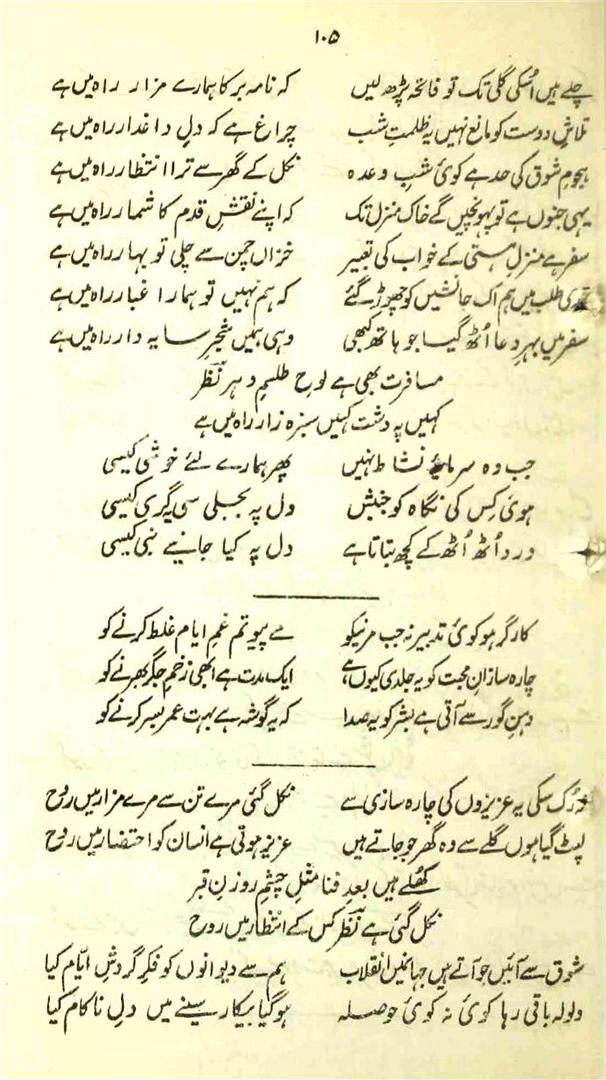 ۱۰۵
چلے ہیں اُسکی گلی تک تو فاتحہ پڑھ لیں کہ نامہ بر کا ہمارے مزار راہ میں ہے
تلاشِ دوست کو مانع نہیں یہ ظلمتِ شب چراغ ہے کہ دلِ داغدار راہ میں ہے
ہجومِ شوق کی حد ہے کوئی شبِ وعدہ نکل کے گھر سے ترا انتظار راہ میں ہے
یہی جنوں ہے تو پہونچیں گے خاک منزل تک کہ اپنے نقشِ قدم کا شمار راہ میں ہے
سفر ہے منزلِ ہستی کے خواب کی تعبیر خزاں چمن سے چلی تو بہار راہ میں ہے
تری طلب میں ہم اک جانشیں کو چھوڑ گئے کہ ہم نہیں تو ہمارا غبار راہ میں ہے
سفر میں بہرِ دعا اُٹھ گیا جو ہاتھ کبھی وہی ہمیں شجرِ سایہ دار راہ میں ہے
مسافرت بھی ہے لوحِ طلسمِ دہر نظرؔ
کہیں پہ دشت کہیں سبزہ زار راہ میں ہے
جب وہ سرمایۂ نشاط نہیں پھر ہمارے لئے خوشی کیسی
ہوئی کِس کی نگاہ کو جنبش دل پہ بجلی سی گری کیسی
درد اُٹھ اُٹھ کے کچھ بتاتا ہے دل پہ کیا جانیے بنی کیسی
کارگر ہو کوئی تدبیر نہ جب مرنیکو مے پیو تم غمِ ایام غلط کرنے کو
چارہ سازانِ محبت کو یہ جلدی کیوں ہے ایک مدت ہے ابھی زخمِ جگر بھرنے کو
دہنِ گور سے آتی ہے بشر کو یہ صدا کہ یہ گوشہ ہے بہت عمر بسر کرنے کو
نہ رُک سکی یہ عزیزوں کی چارہ سازی سے نکل گئی مرے تن سے مرے مزار میں روح
لپٹ گیا ہوں گلے سے وہ گھر جو جاتے ہیں عزیز ہوتی ہے انسان کو احتضار میں روح
کھُلے ہیں بعدِ فنا مثلِ چشم روزنِ قبر
نکل گئی ہے نظرؔ کس کے انتظار میں روح
شوق سے آئیں جو آتے ہیں جہانمیں انقلاب ہم سے دیوانوں کو فکرِ گردشِ ایّام کیا
ولولہ باقی رہا کوئی نہ کوئی حوصلہ ہو گیا بیکار سینے میں دلِ ناکام کیا